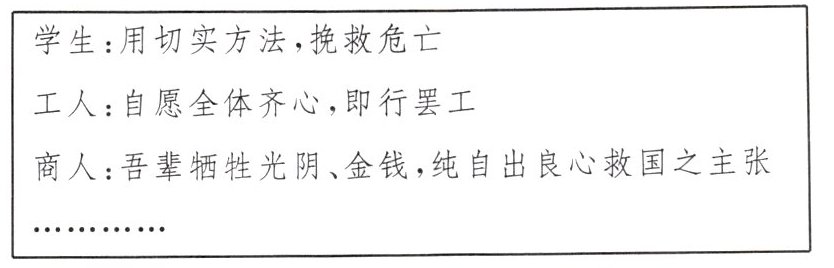 学生:用切实方法,挽救危亡
工人:自愿全体齐心,即行罢工
商人:吾辈牺牲光阴、金钱,纯自出良心救国之主张
…………